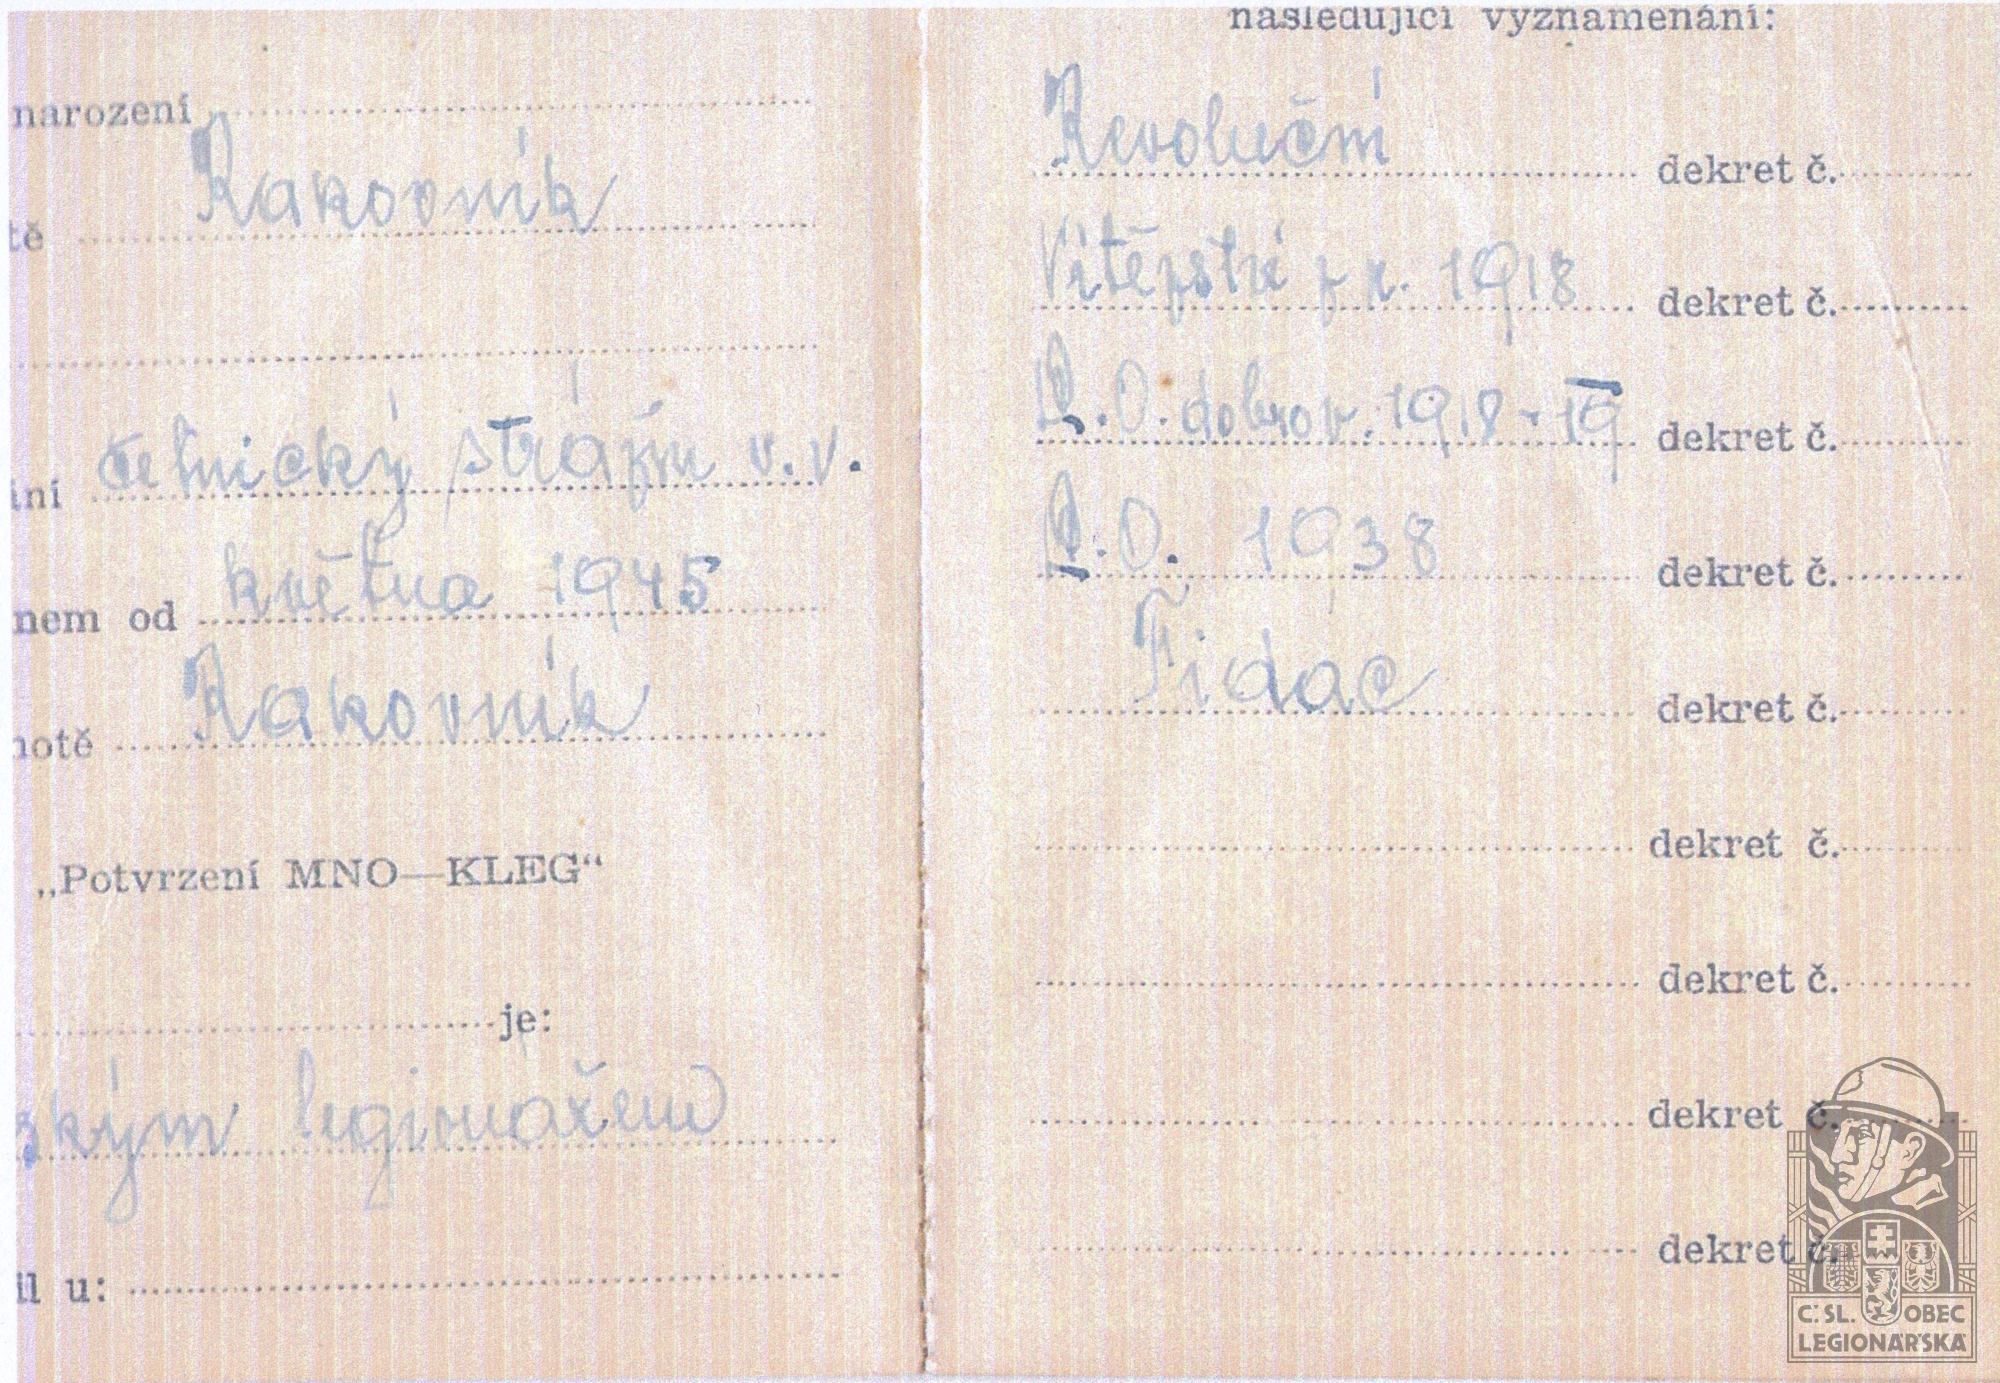 narození
Rakovník
tě
ání četnický strážm v.v.
nem od května 1945
Rakovník
notě
„Potvrzení MNO—KLEG“
je:
ským legionářem
il u:
následující vyznamenání:
Revoluční dekret č.
Vítězství z r. 1918 dekret č.
P.O. dobrov. 1918-19 dekret č.
P.O. 1938 dekret č.
Fidac dekret č.
dekret č.
dekret č.
dekret č.
dekret č.
Č. SL. OBEC
LEGIONÁŘSKÁ